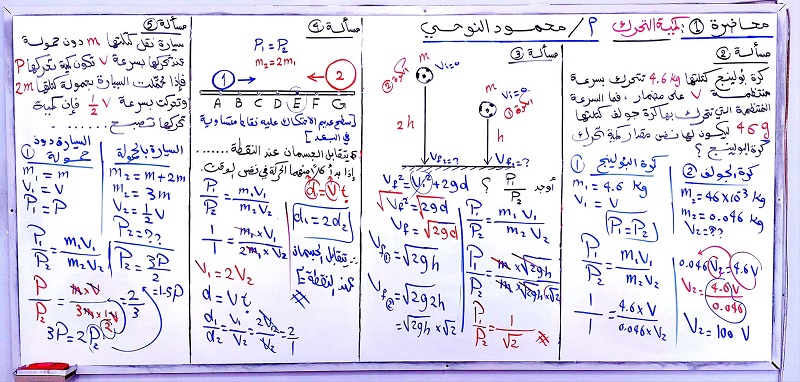 محاضرة ① : كمية التحرك
م / محمود النوحي
مسألة ②
كرة بولينج كتلتها 4.6 kg تتحرك بسرعة
منتظمة V على مضمار، فما السرعة
المنتظمة التي تتحرك بها كرة جولف كتلتها
46 g ليكون لها نفس مقدار كمية تحرك
كرة البولينج ؟
① كرة البولينج
m₁ = 4.6 kg
V₁ = V
P₁ = P₂
P₁/P₂ = m₁V₁/m₂V₂
1/1 = 4.6 × V/0.046 × V₂
② كرة الجولف
m₂ = 46 × 10⁻³ kg
m₂ = 0.046 kg
V₂ = ??
0.046 V₂ = 4.6 V
V₂ = 4.6 V/0.046
V₂ = 100 V
مسألة ③
m
Vᵢ = 0
② الكرة
2h
V_f₂ = ?
m
Vᵢ = 0
① الكرة
h
V_f₁ = ?
أوجد P₁/P₂ ؟
V_f² = Vᵢ² + 2gd
√V_f² = √2gd
V_f = √2gd
V_f① = √2gh
V_f② = √2g2h
= √2gh × √2
P₁/P₂ = m₁V₁/m₂V₂
P₁/P₂ = m × √2gh/m × √2gh × √2
P₁/P₂ = 1/√2
مسألة ④
P₁ = P₂
m₂ = 2m₁
① ②
A B C D E F G
[سطح عديم الاحتكاك عليه نقاط متساوية
في البعد]
يتقابل الجسمان عند النقطة ........
إذا بدأ كلاً منهما الحركة في نفس الوقت.
P₁/P₂ = m₁V₁/m₂V₂
1/1 = m₁ × V₁/2m₁ × V₂
V₁ = 2V₂
d = Vt
d₁/d₂ = V₁/V₂ = 2V₂/V₂ = 2/1
d = V t
d₁ = 2d₂
∴ يتقابل الجسمان
عند النقطة E
مسألة ⑤
سيارة نقل كتلتها m دون حمولة
عند تحركها بسرعة V تكون كمية تحركها P
فإذا حُمِّلت السيارة بحمولة كتلتها 2m
وتحركت بسرعة ½V فإن كمية
تحركها تصبح ........
① السيارة دون حمولة
m₁ = m
V₁ = V
P₁ = P
P₁/P₂ = m₁V₁/m₂V₂
P/P₂ = m × V/3m × ½V = 2/3
3P = 2P₂
السيارة بالحمولة
m₂ = m + 2m
m₂ = 3m
V₂ = ½V
P₂ = ??
P₂ = 3P/2
= 1.5P